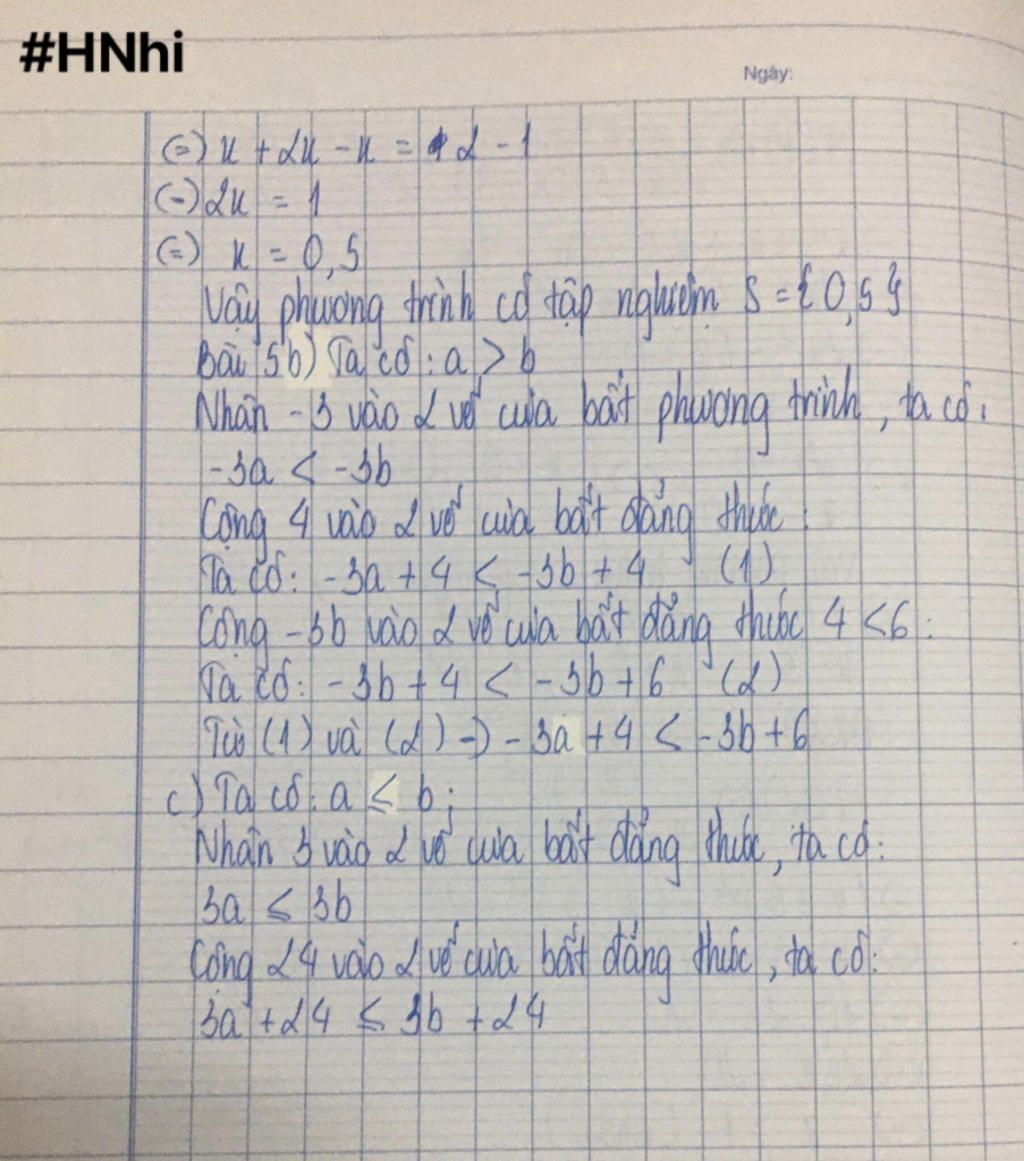 #HNhi
Ngày:
(=) x + 2x - x = 2 - 1
(=) 2x = 1
(=) x = 0,5
Vậy phương trình có tập nghiệm S = {0,5}
Bài 5b) Ta có: a > b
Nhân -3 vào 2 vế của bất phương trình, ta có:
-3a < -3b
Cộng 4 vào 2 vế của bất đẳng thức:
Ta có: -3a + 4 < -3b + 4 (1)
Cộng -3b vào 2 vế của bất đẳng thức 4 < 6:
Ta có: -3b + 4 < -3b + 6 (2)
Từ (1) và (2) => -3a + 4 < -3b + 6
c) Ta có: a ≤ b;
Nhân 3 vào 2 vế của bất đẳng thức, ta có:
3a ≤ 3b
Cộng 24 vào 2 vế của bất đẳng thức, ta có:
3a + 24 ≤ 3b + 24